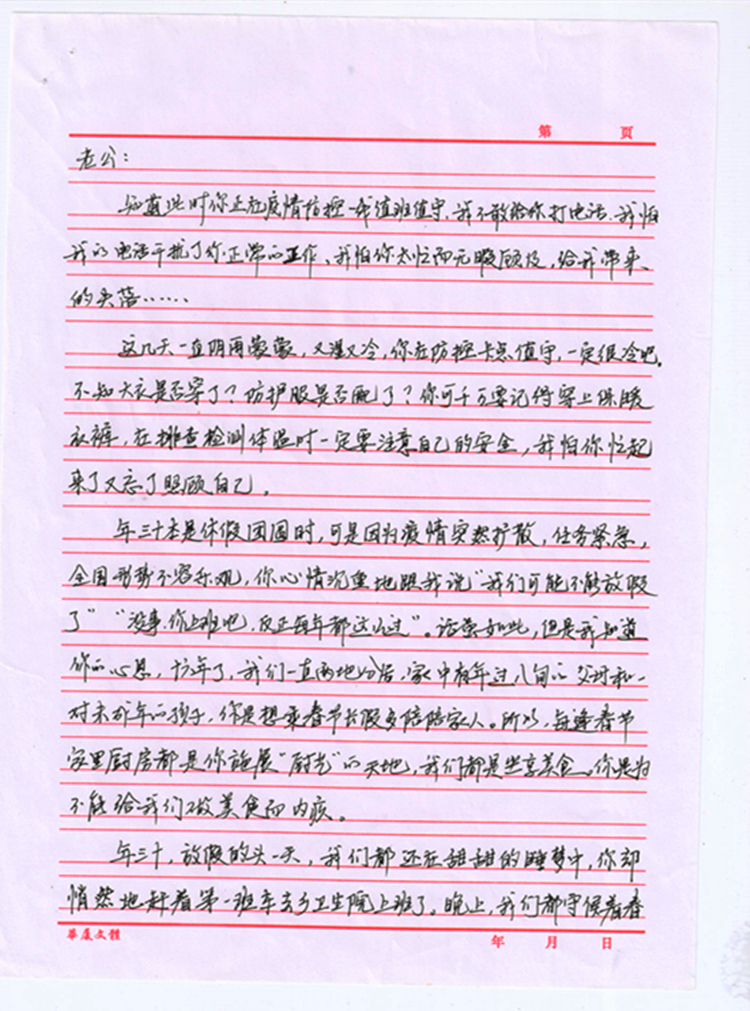 第 頁
老公：
知道此时你正在疫情防控一线值班值守，我不敢给你打电话，我怕
我的电话干扰了你正常的工作、我怕你太忙而无暇顾及，给我带来
的失落……
这几天一直阴雨蒙蒙，又湿又冷，你在防控卡点值守，一定很冷吧。
不知大衣是否穿了？防护服是否配了？你可千万要记得穿上保暖
衣裤，在排查检测体温时一定要注意自己的安全，我怕你忙起
来了又忘了照顾自己。
年三十本是休假团圆时，可是因为疫情突然扩散，任务紧急，
全国形势不容乐观，你心情沉重地跟我说“我们可能不能放假
了”“没事，你上班吧，反正每年都这么过”。话虽如此，但是我知道
你的心思，十年了，我们一直两地分居，家中有年过八旬的父母和一
对未成年的孩子，你是想乘春节长假多陪陪家人。所以，每逢春节
家里厨房都是你施展“厨艺”的天地，我们都是坐享美食。你是为
不能给我们做美食而内疚。
年三十，放假的头一天，我们都还在甜甜的睡梦中，你却
悄然地赶着第一班车去乡卫生院上班了。晚上，我们都守候着春
華廈文體 年 月 日